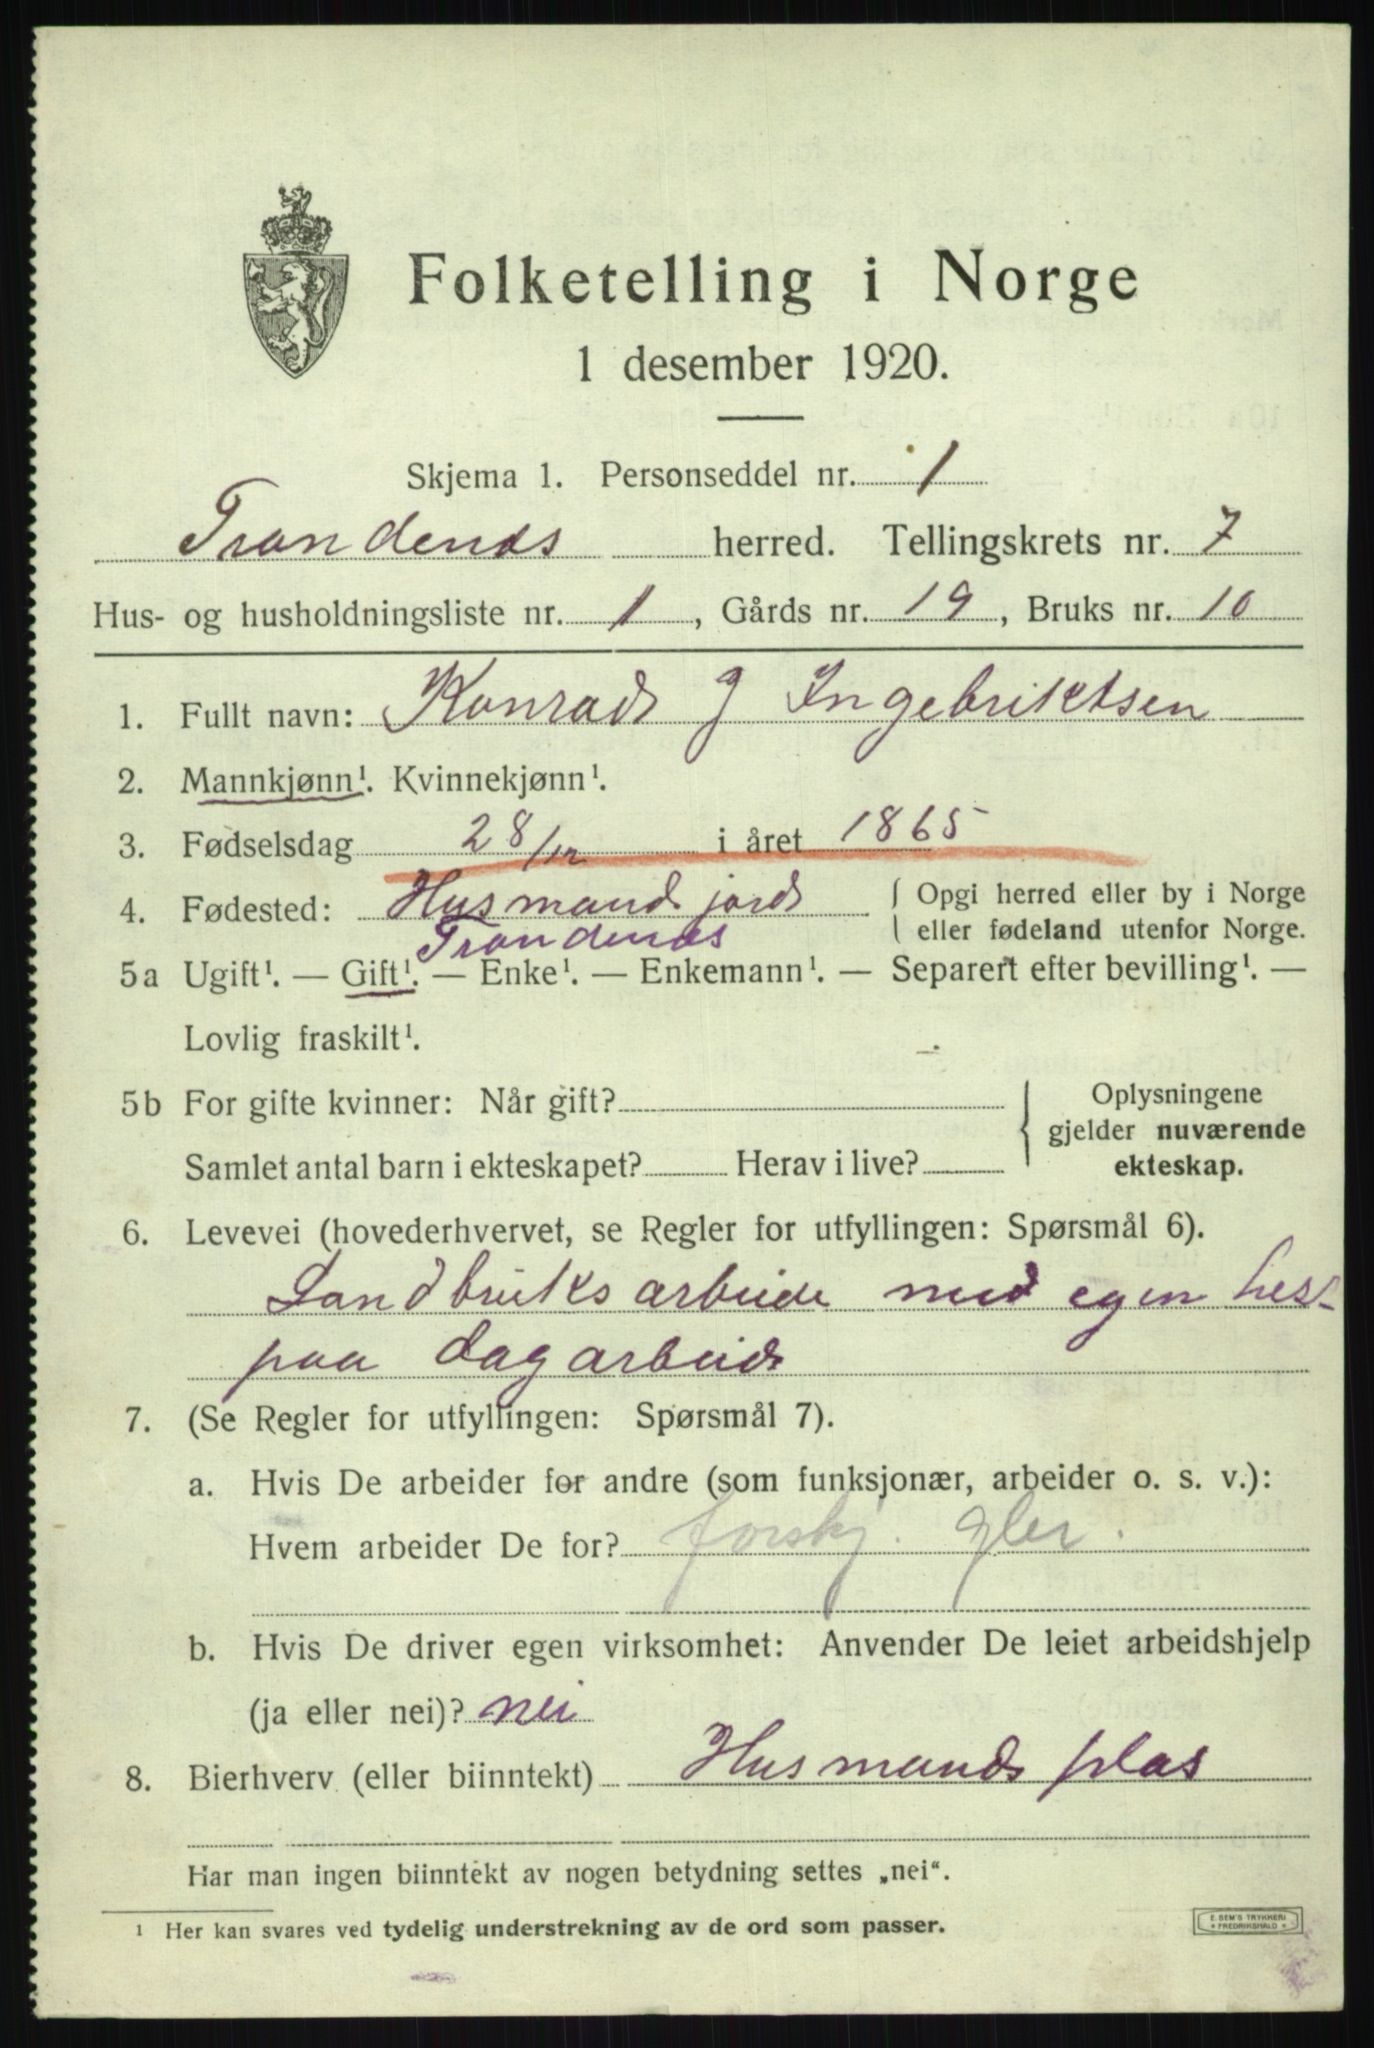 Folketelling i Norge
1 desember 1920.
Skjema 1. Personseddel nr. 1
Trondenes herred. Tellingskrets nr. 7
Hus- og husholdningsliste nr. 1, Gårds nr. 19, Bruks nr. 10
1. Fullt navn: Konrad J Ingebriktsen
2. Mannkjønn¹. Kvinnekjønn¹.
3. Fødselsdag 28/12 i året 1865
4. Fødested: Husmands jord { Opgi herred eller by i Norge
Trondenes eller fødeland utenfor Norge.
5a Ugift¹. — Gift¹. — Enke¹. — Enkemann¹. — Separert efter bevilling¹. —
Lovlig fraskilt¹.
5b For gifte kvinner: Når gift? } Oplysningene
gjelder nuværende
Samlet antal barn i ekteskapet? Herav i live? ekteskap.
6. Levevei (hovederhvervet, se Regler for utfyllingen: Spørsmål 6).
Landbruksarbeide med egen hest
paa dagarbeide
7. (Se Regler for utfyllingen: Spørsmål 7).
a. Hvis De arbeider for andre (som funksjonær, arbeider o. s. v.):
Hvem arbeider De for? forskj.
b. Hvis De driver egen virksomhet: Anvender De leiet arbeidshjelp
(ja eller nei)? nei
8. Bierhverv (eller biinntekt) Husmands plas
Har man ingen biinntekt av nogen betydning settes „nei“.
¹ Her kan svares ved tydelig understrekning av de ord som passer.
E. SEM'S TRYKKERI
* FREDRIKSHALD *